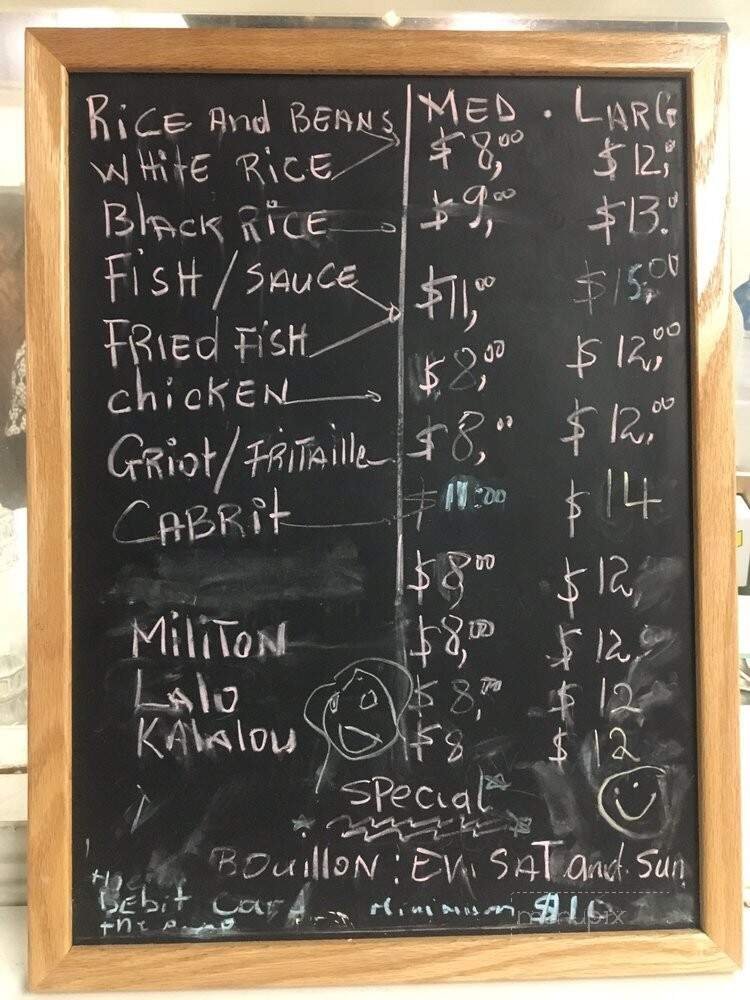 MED . LARG
RiCE And BEANS $8,00 $12,0
WHiTE RiCE
BlACK RiCE $9,00 $13.0
FiSH / SAUCE $11,00 $15.00
FRiEd FiSH
chiCKEN $8,00 $12,00
GRiot/FRiTAille $8,00 $12,00
CABRit $11:00 $14
$8,00 $12,
MiliTON $8,00 $12,
LAlo $8,00 $12
KAlAlou $8 $12
SPecial
BOuillON : EVi SAT and Sun
Debit Card Minimum
menupix